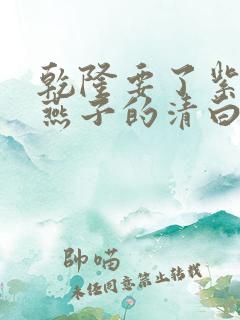 乾隆要了紫
燕子的清白
帥喵
未经同意禁止转载